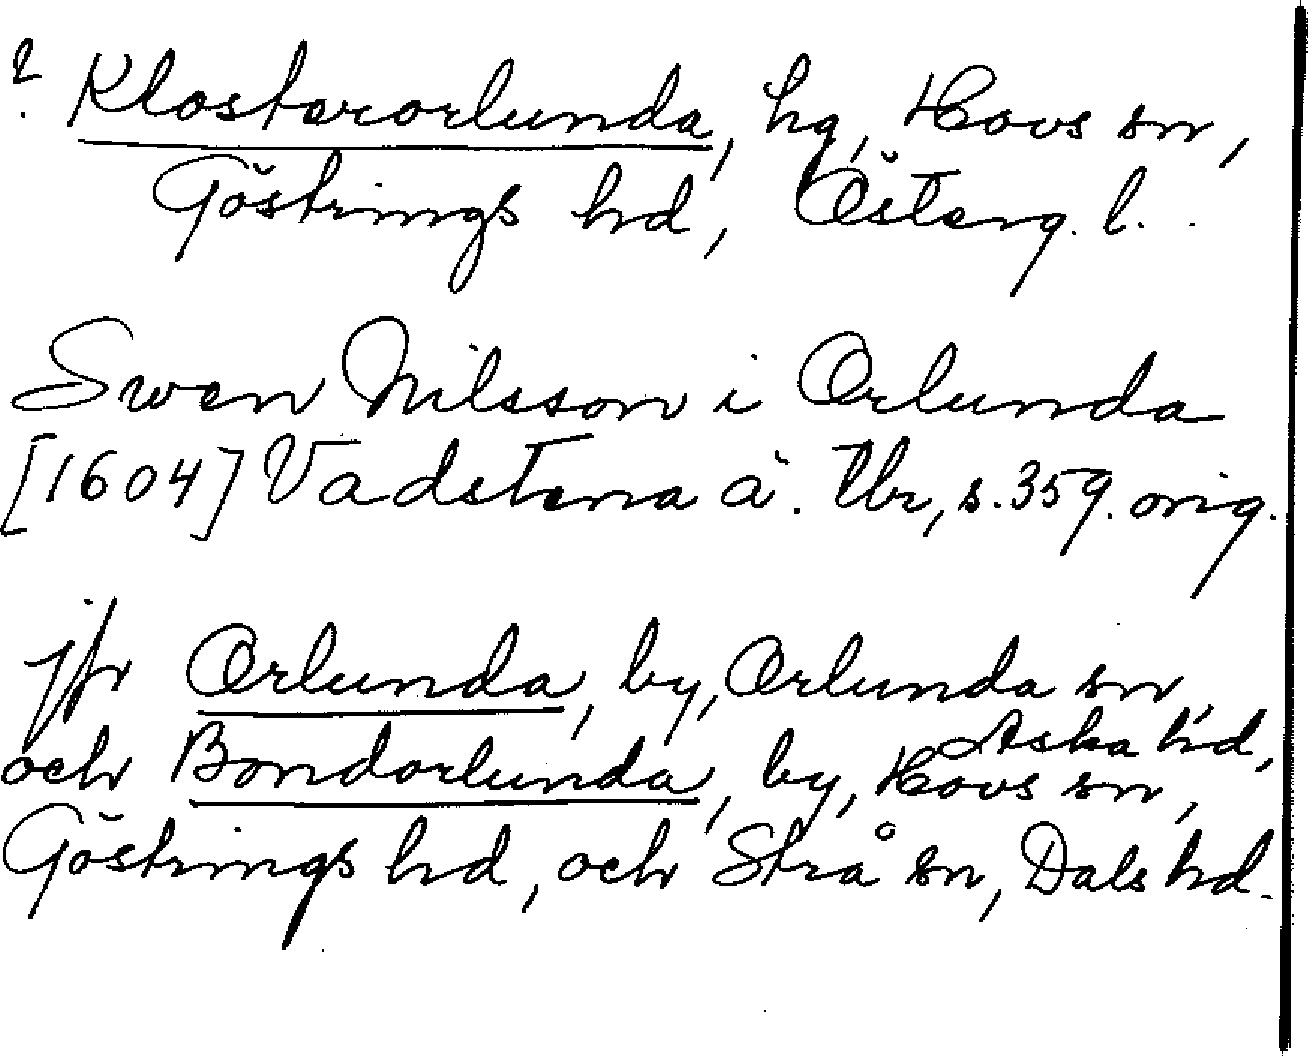 ? Klosterorlunda, hg, Hovs sn,
Göstrings hd, Österg. l.
Swen Nilsson i Orlunda
[1604] Vadstena ä. Tbr, s. 359. orig.
jfr Orlunda, by, Orlunda sn,
Aska hd,
och Bondorlunda, by, Hovs sn,
Göstrings hd, och Strå sn, Dals hd.